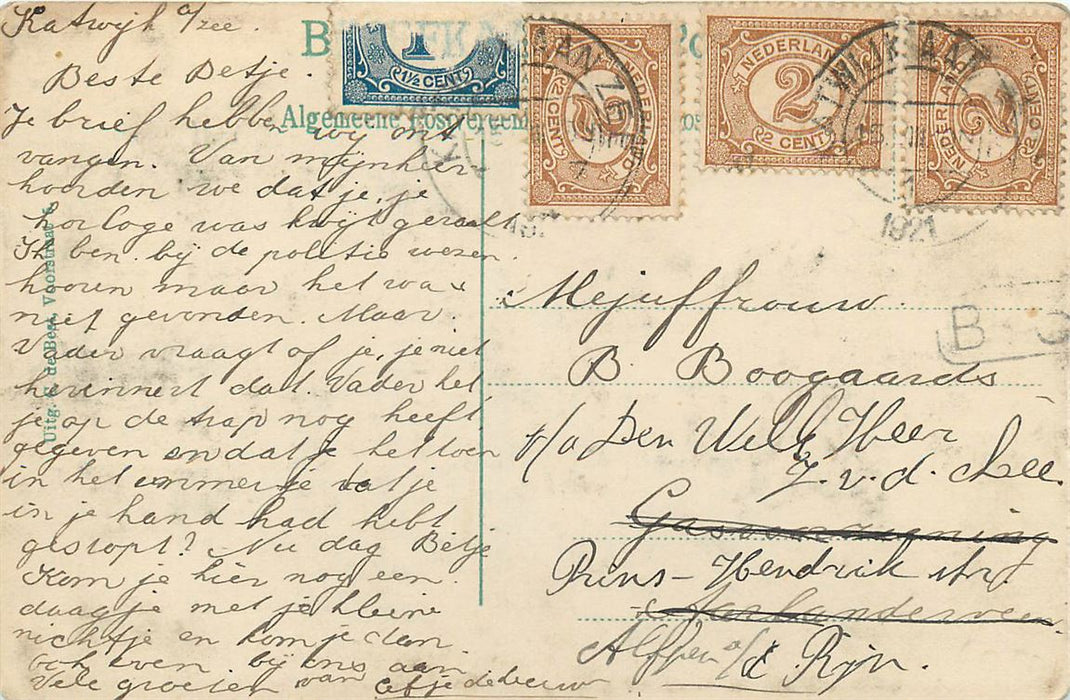 Katwijk a/zee.
Beste Betje.
Je brief hebben wy ont
vangen. Van mynheer
hoorden we dat je, je
horloge was kwyt geraakt
Ik ben by de politie wezen
hooren maar het was
niet gevonden. Maar.
Vader vraagt of je, je niet
herinnert dat Vader het
je op de trap nog heeft
gegeven en dat je het toen
in het emmertje dat je
in je hand had hebt
gestopt? Nu dag Betje
Kom je hier nog een
daagje met je kleine
nichtje en kom je dan
ook even by ons aan
Vele groeten van de Leeuw
Algemeene Postvereen
Uitg. G. de Best, Voorstraat
1½ CENT
NEDERLAND
2
2 CENT
NEDERLAND
2
2 CENT
NEDERLAND
2
2 CENT
KATWIJK AAN ZEE
1921
Mejuffrouw
B. Boogaards
p/a Den Welg. Heer
Z. v. d. Lee.
Prins-Hendrik str.
Alffen a/d Rijn.